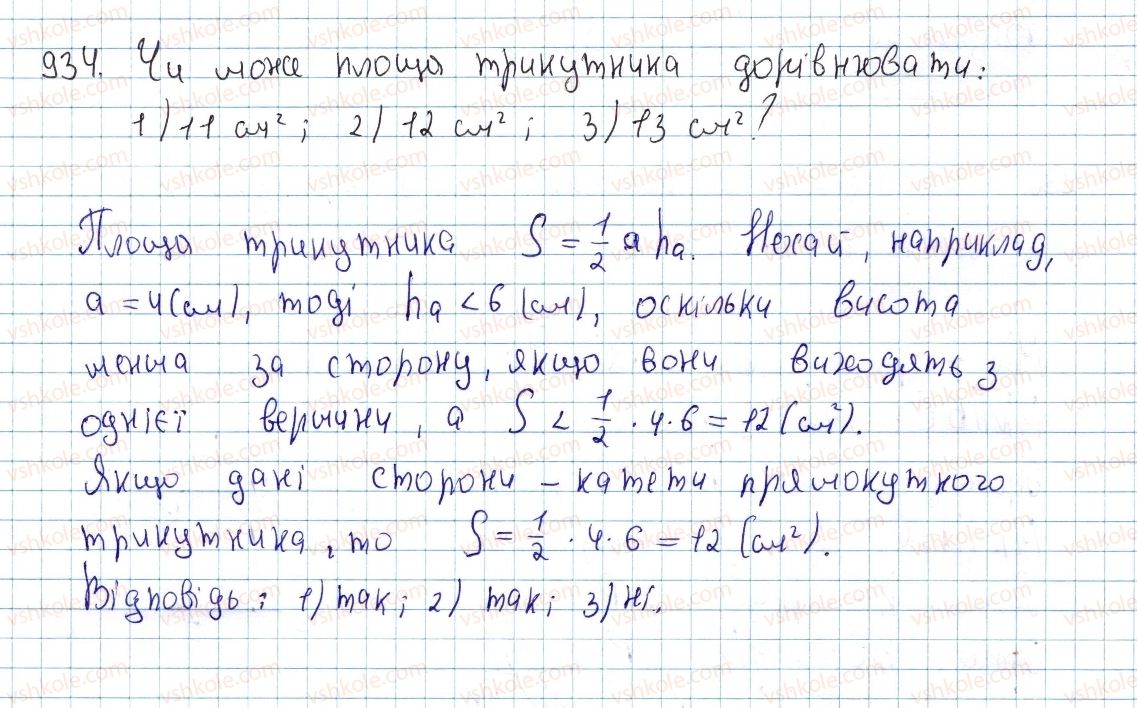 934. Чи може площа трикутника дорівнювати:
1) 11 см²; 2) 12 см²; 3) 13 см²?
Площа трикутника S = 1/2 a hₐ. Нехай, наприклад,
a = 4 (см), тоді hₐ < 6 (см), оскільки висота
менша за сторону, якщо вони виходять з
однієї вершини, а S < 1/2 · 4 · 6 = 12 (см²).
Якщо дані сторони – катети прямокутного
трикутника, то S = 1/2 · 4 · 6 = 12 (см²).
Відповідь: 1) так; 2) так; 3) ні.